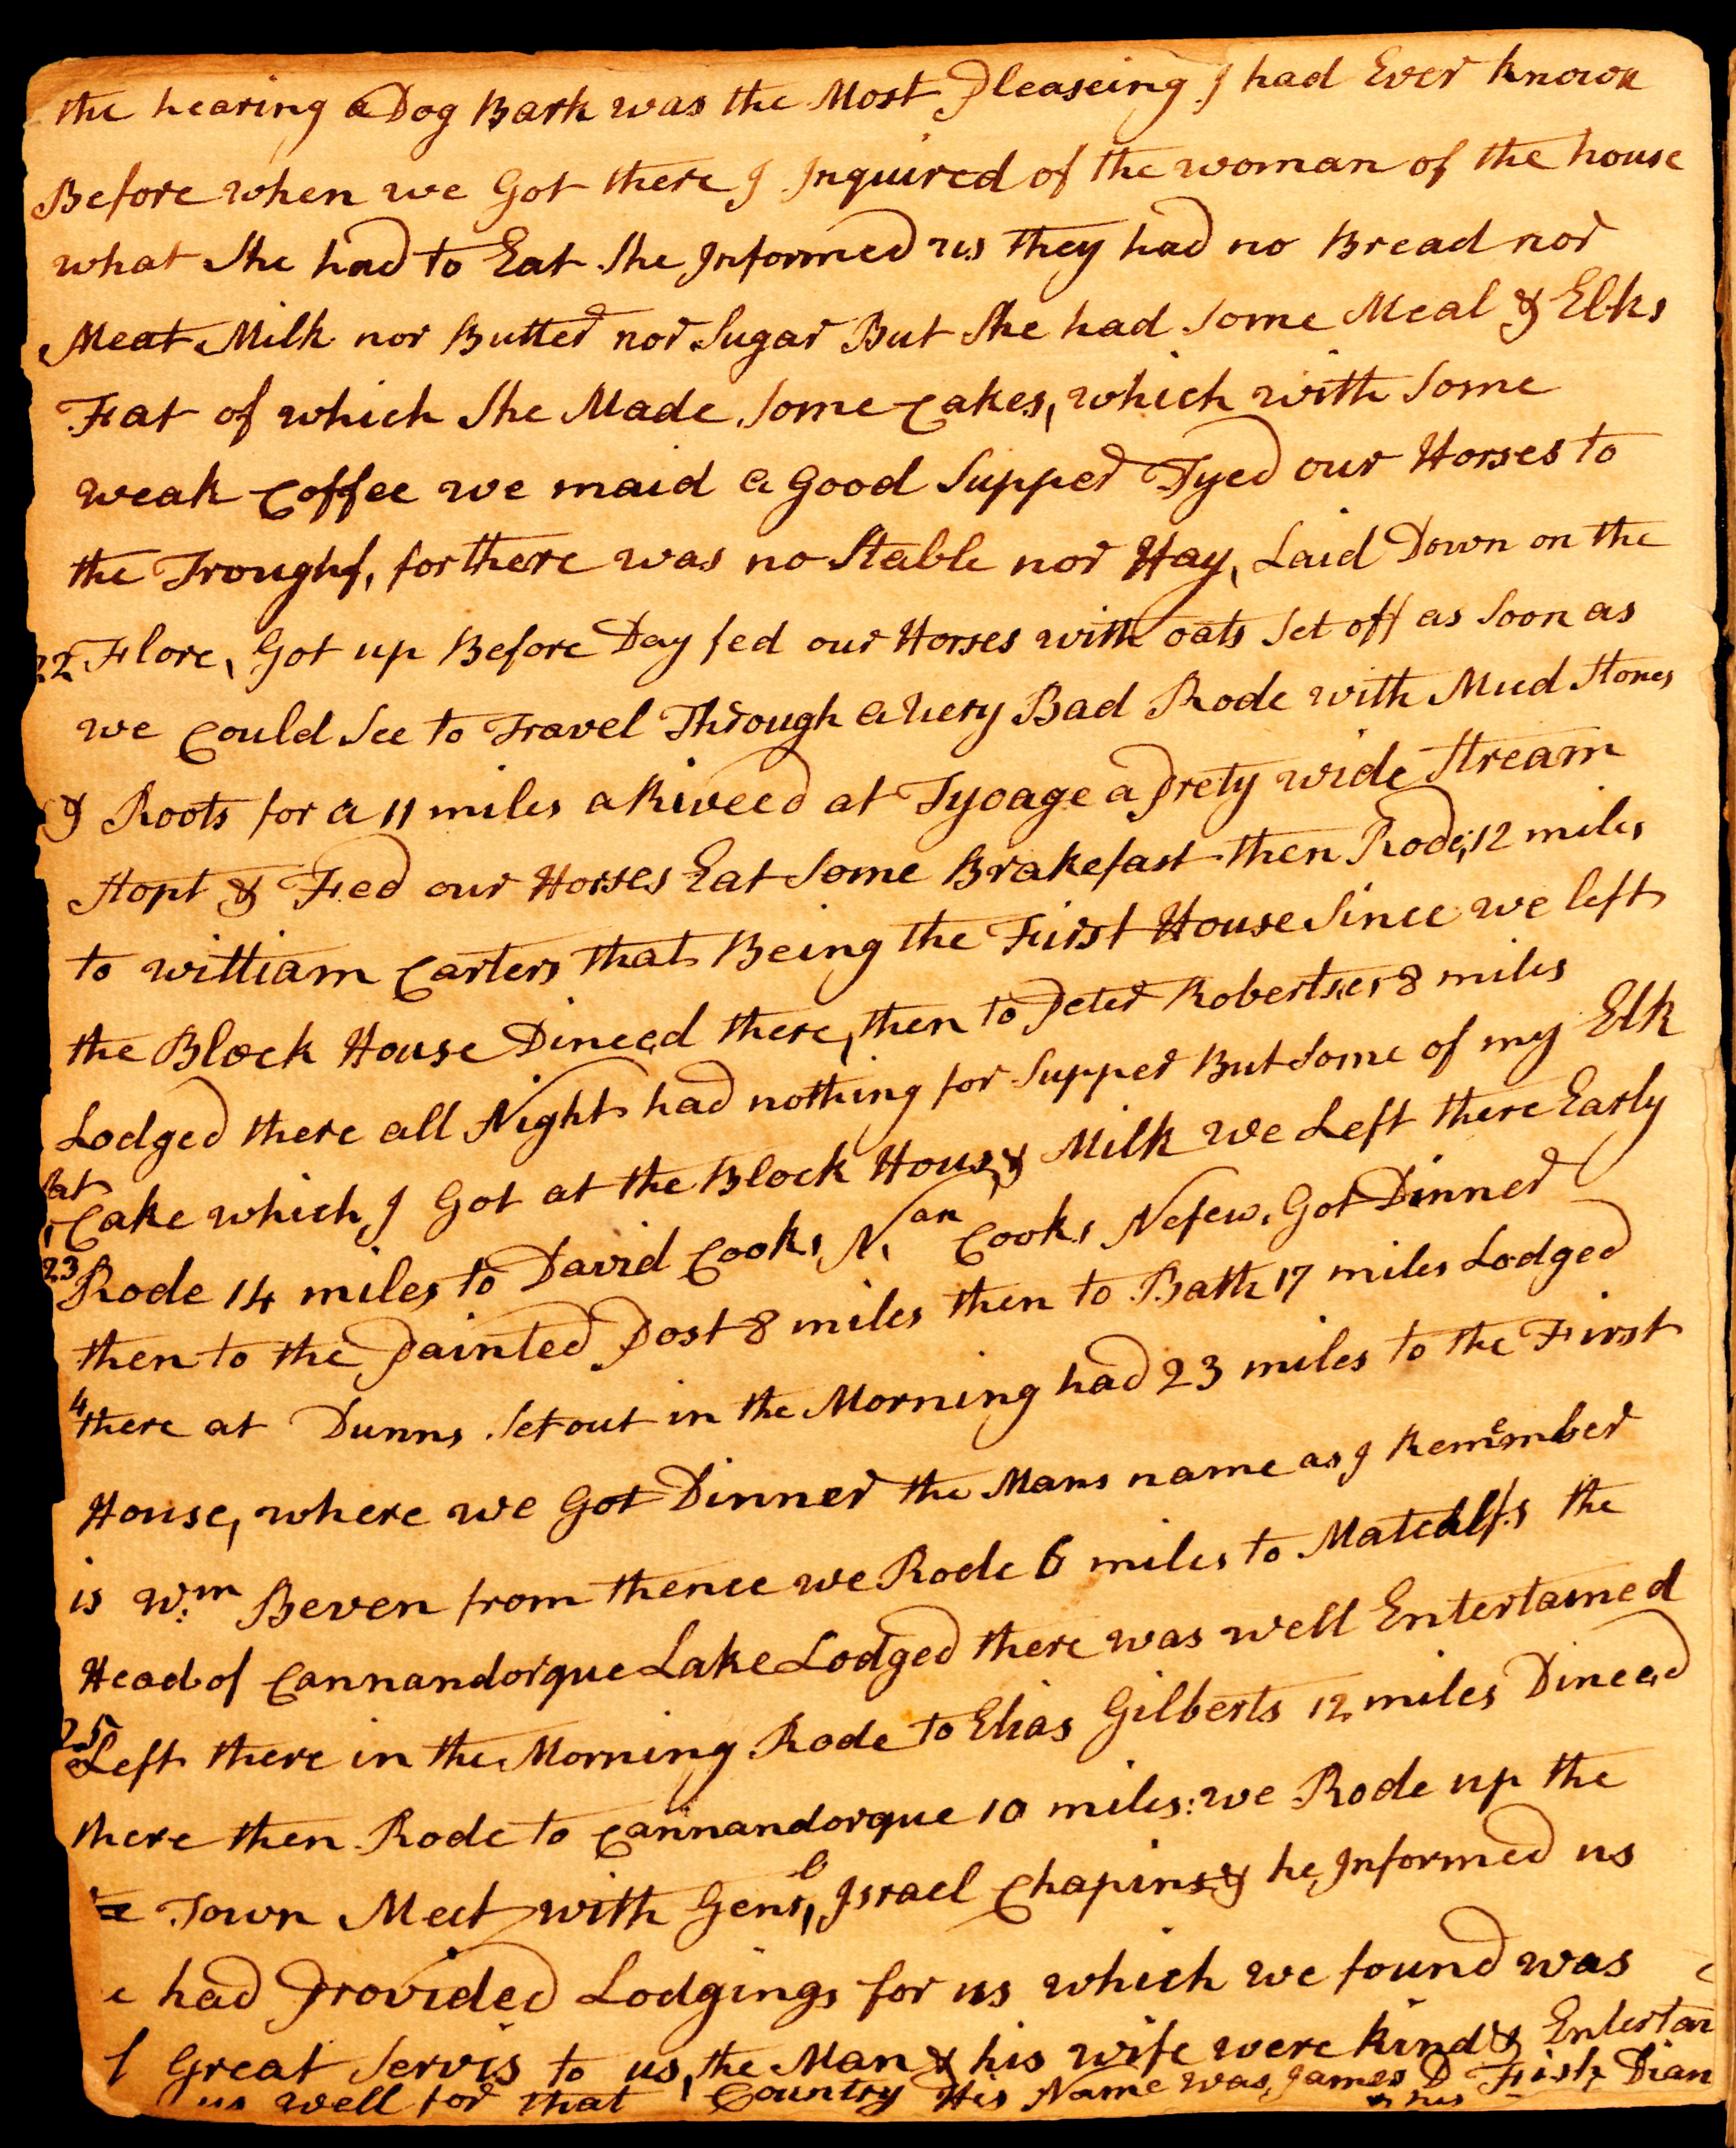 the hearing a Dog Bark was the Most Pleaseing I had Ever known
Before when we Got there I Inquired of the woman of the house
what she had to Eat she Informed us they had no Bread nor
Meat Milk nor Butter nor Sugar But She had some Meal & Elks
Fat of which She Made some Cakes, which with Some
weak Coffee we maid a Good Supper Tyed our Horses to
the Troughf, for there was no Stable nor Hay, Laid Down on the
22 Flore, Got up Before Day fed our Horses with oats Set off as Soon as
we Could See to Travel Through a very Bad Rode with Mud Stones
& Roots for a 11 miles a Riveed at Tyoage a prety wide Stream
Stopt & Fed our Horses Eat Some Brakefast then Rode, 12 miles
to william Carters that Being the First House Since we left
the Block House Dineed there, then to Peter Robertses 8 miles
Lodged there all Night had nothing for Supper But Some of my Elk
fat
Cake which I Got at the Block House, & Milk we Left there Early
23 Rode 14 miles to David Cooks, N.an Cooks Nefew, Got Dinner
then to the Painted Post 8 miles then to Bath 17 miles Lodged
4 there at Dunns Set out in the Morning had 23 miles to the First
House, where we Got Dinner the Mans name as I Remember
is Wm Beven from thence we Rode 6 miles to Matcalfs the
Head of Cannandorque Lake Lodged there was well Entertained
25 Left there in the Morning Rode to Elias Gilberts 12 miles Dineed
there then Rode to Cannandorque 10 miles: we Rode up the
Town Meet with Genl, Israel Chapins & he Informed us
had Provided Lodgings for us which we found was
f Great Servis to us, the Man & his wife were kind & Entertai
us well for that Country His Name was James D Fish, Dian
his